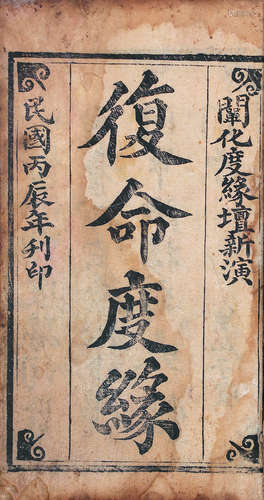 闡化度緣壇新演
復命度緣
民國丙辰年刊印